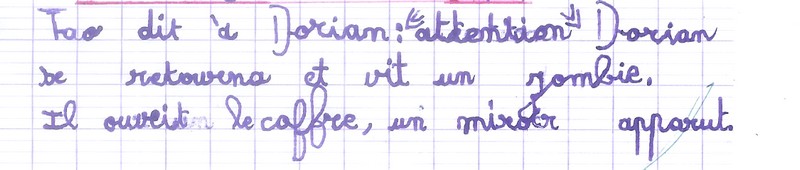 Tao dit à Dorian : "attention" Dorian
se retourna et vit un zombie.
Il ouvrit le coffre, un miroir apparut.